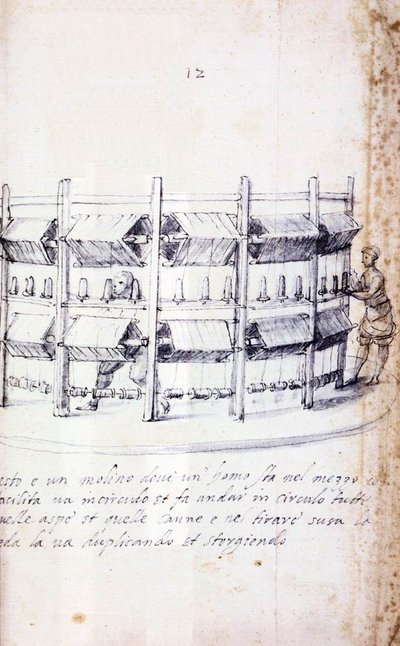 12
esto e un molino doui un' homo sta nel mezzo
acilita ua incirculo et fa andar in circulo tutte
uelle aspe et quelle canne e nel tirare susa la
eda la ua duplicando et storgiendo